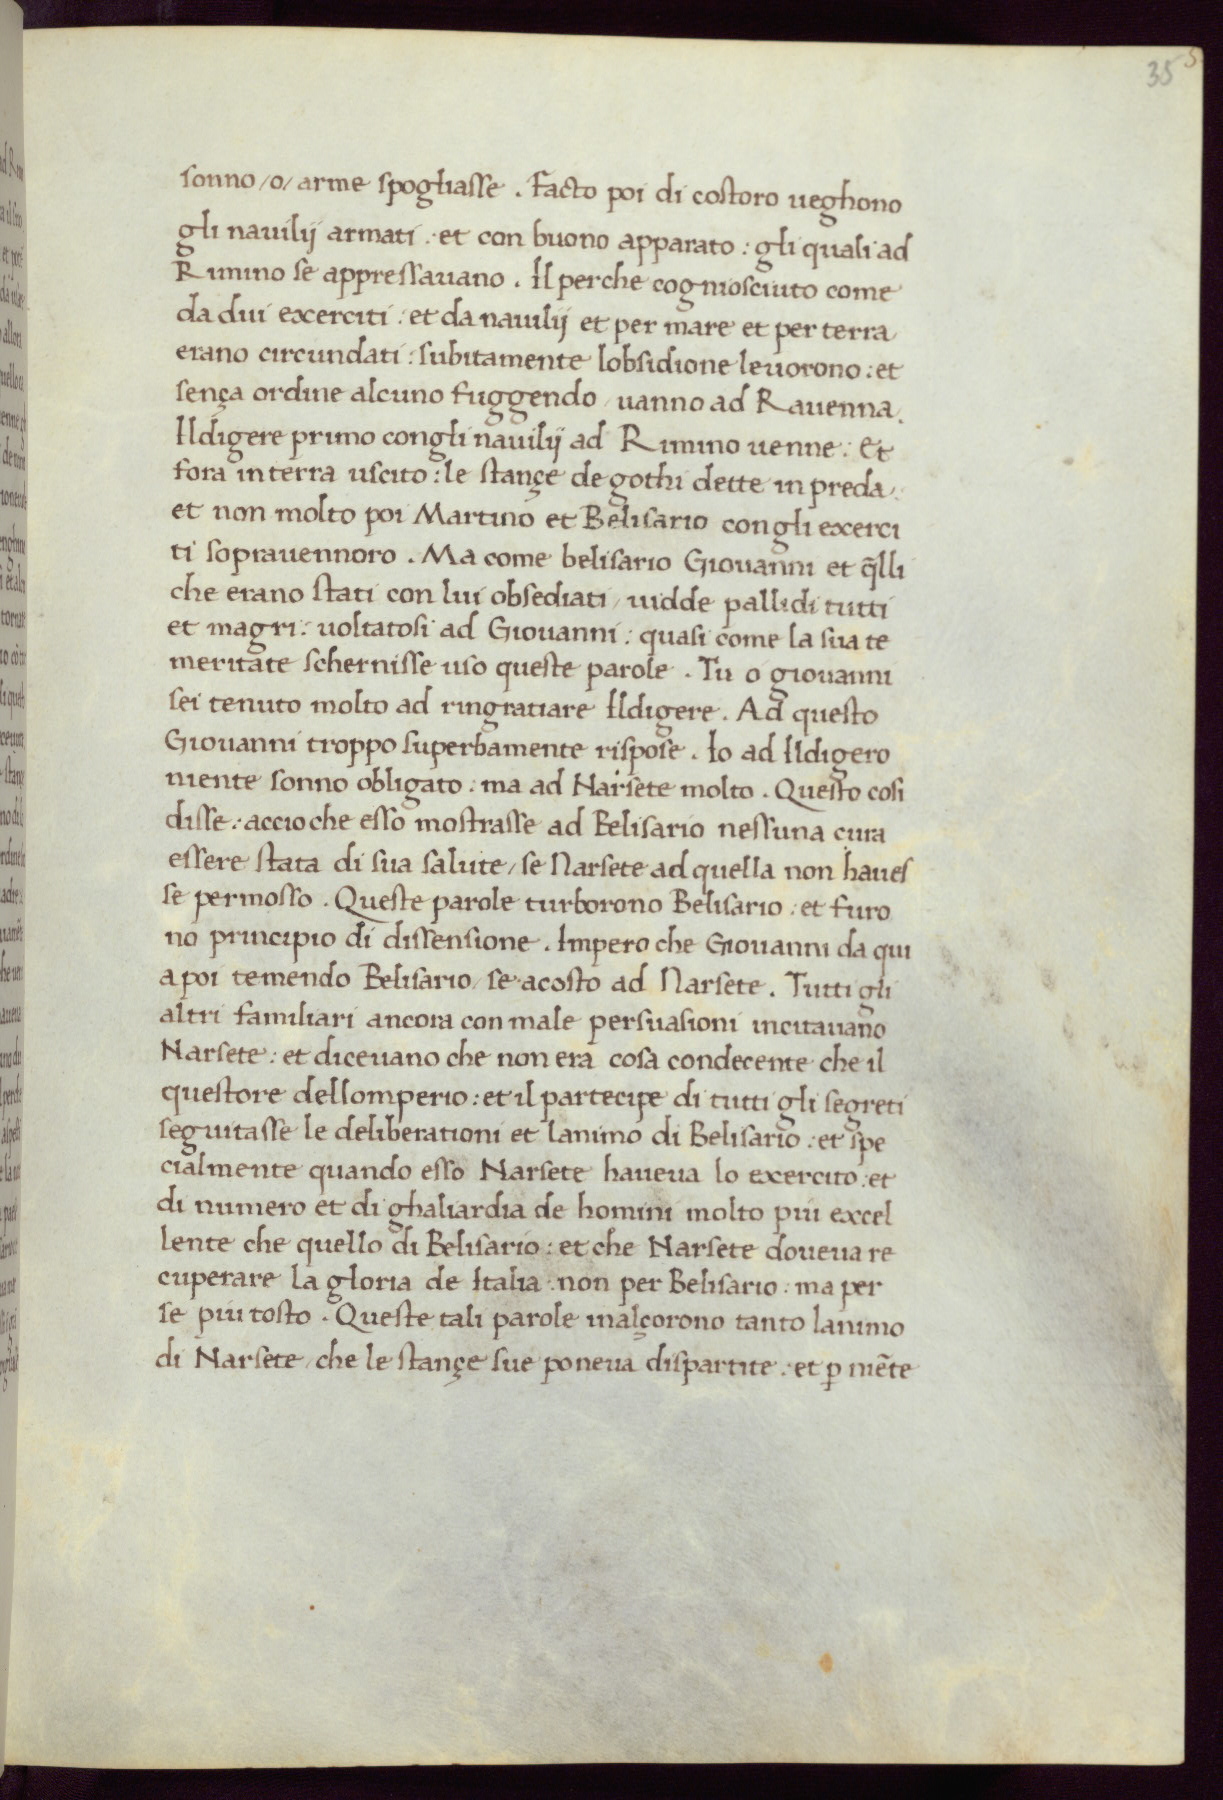 35
sonno /o/ arme spogliasse . Facto poi di costoro ueghono
gli nauilij armati : et con buono apparato : gli quali ad
Rimino se appressauano . Il perche cognosciuto come
da dui exerciti : et da nauilij et per mare et per terra
erano circundati : subitamente lobsidione leuorono : et
sença ordine alcuno fuggendo / uanno ad Rauenna .
Ildigere primo congli nauilij ad Rimino uenne : Et
fora in terra uscito : le stançe de gothi dette in preda :
et non molto poi Martino et Belisario congli exerci
ti soprauennoro . Ma come belisario Giouanni et q̄lli
che erano stati con lui obsediati / uidde pallidi tutti
et magri : uoltatosi ad Giouanni : quasi come la sua te
meritate schernisse uso queste parole . Tu o giouanni
sei tenuto molto ad ringratiare Ildigere . Ad questo
Giouanni troppo superbamente rispose . Io ad Ildigero
niente sonno obligato : ma ad Narsete molto . Questo cosi
disse : accioche esso mostrasse ad Belisario nessuna cura
essere stata di sua salute / se Narsete ad quella non haues
se permosso . Queste parole turborono Belisario : et furo
no principio di dissensione . Impero che Giouanni da qui
a poi temendo Belisario / se acosto ad Narsete . Tutti gli
altri familiari ancora con male persuasioni incitauano
Narsete : et diceuano che non era cosa condecente che il
questore dellomperio : et il partecipe di tutti gli segreti
seguitasse le deliberationi et lanimo di Belisario : et spe
cialmente quando esso Narsete haueua lo exercito : et
di numero et di ghaliardia de homini molto piu excel
lente che quello di Belisario : et che Narsete doueua re
cuperare la gloria de Italia : non per Belisario : ma per
se piu tosto . Queste tali parole inalçorono tanto lanimo
di Narsete / che le stançe sue poneua dispartite : et ꝑ niēte